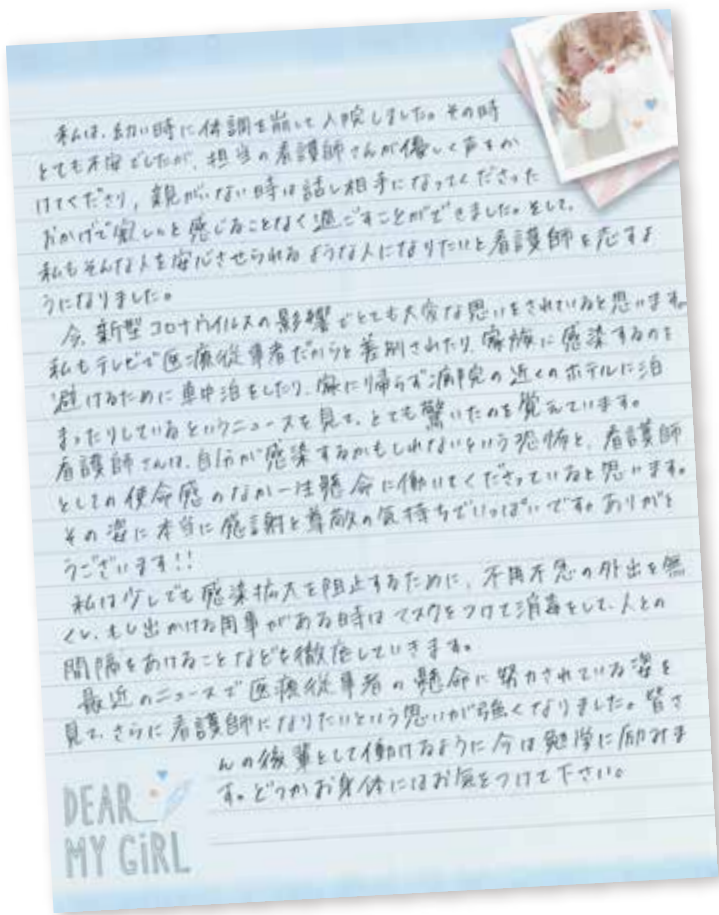 私は、幼い時に体調を崩して入院しました。その時
とても不安でしたが、担当の看護師さんが優しく声をか
けてくださり、親がいない時は話し相手になってくださった
おかげで寂しいと感じることなく過ごすことができました。そして、
私もそんな人を安心させられるような人になりたいと看護師を志すよ
うになりました。
今、新型コロナウイルスの影響でとても大変な思いをされていると思います。
私もテレビで医療従事者だからと差別されたり、家族に感染するのを
避けるために車中泊をしたり、家に帰らず病院の近くのホテルに泊
まったりしているというニュースを見て、とても驚いたのを覚えています。
看護師さんは、自分が感染するかもしれないという恐怖と、看護師
としての使命感のなか一生懸命に働いてくださっていると思います。
その姿に本当に感謝と尊敬の気持ちでいっぱいです。ありがと
うございます!!
私は少しでも感染拡大を阻止するために、不用不急の外出を無
くし、もし出かける用事がある時はマスクをつけて消毒をして、人との
間隔をあけることなどを徹底していきます。
最近のニュースで医療従事者の懸命に努力されている姿を
見て、さらに看護師になりたいという思いが強くなりました。皆さ
んの後輩として働けるように今は勉学に励みま
す。どうかお身体にはお気をつけて下さい。
DEAR
MY GiRL